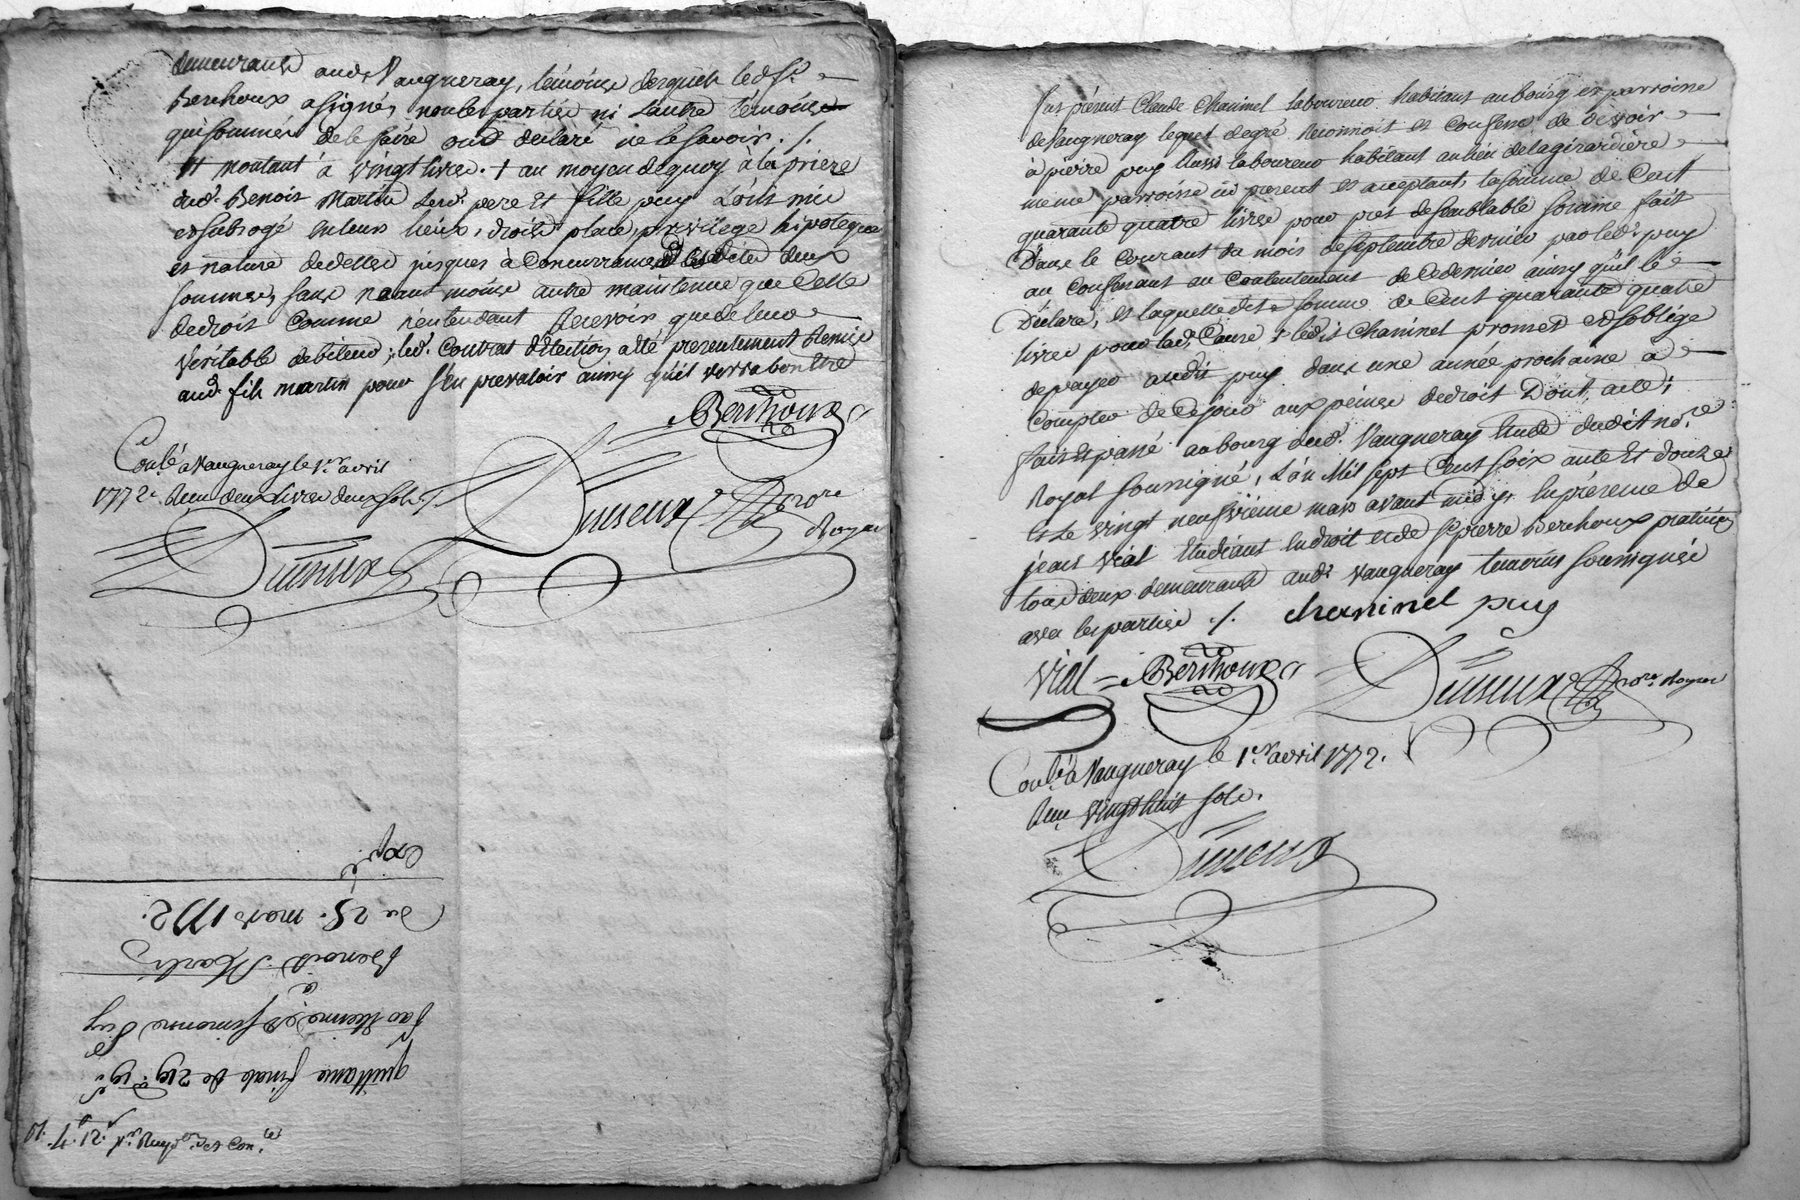 demeurants aud. Vaugneray, témoins desquels led. Sr.
Berthoux a signé, non les parties ni l'autre témoins
qui sommés de le faire ont declaré ne le savoir ./.
et montant à vingt livres. + au moyen de quoy à la priere
dud. Benoit Martin lesd. pere et fille puy l'ont mis
et subrogé en leurs lieux, droits place, privilege hipoteque
et nature dedettes jusques à concurrance desdites deux
sommes, sans néant moins autre maintenue que celle
de droit comme n'entendant recevoir que de leur
veritable debiteur; led. contrat d'élection a été presentement remis
aud. fils martin pour s'en prevaloir ainsy qu'il verra bon être
Berthoux
Conlé à Vaugneray le 1er avril
1772. Reçu deux livres deux sols ./.
nore
Royal
expé
du 25. mars 1772.
Benoit Martin
à
par et Simonne Puy
quittance finale de 219.
fas présent Claude Chaninel laboureur habitant au bourg et parroisse
de Vaugneray lequel de gré reconnoit et confesse de devoir
à pierre puy aussi laboureur habitant au lieu de la girardière
meme parroisse ici present et acceptant, la somme de Cent
quarante quatre livres pour prêt de semblable somme fait
Dans le courant du mois de septembre dernier par led. puy
au confessant au contentement de ce dernier ainsy qu'il le
Déclare, et laquelle dite somme de Cent quarante quatre
livres pour lad. cause ledit Chaninel promet et s'oblige
de payer audit puy dans une année prochaine à
compter de ce jour aux peines de droit Dont acte;
fait et passé au bourg dud. Vaugneray Etude dudit nore.
Royal soussigné, L'an Mil sept Cent soix ante et douze
et Le vingt neufvieme mars avant midy, en présence de
jean Vial Etudiant en droit et de Sr. pierre Berthoux praticien
tous deux demeurants aud. Vaugneray temoins soussignés
avec les parties ./. chaninel puy
Vial Berthoux nore. Royal
Conlé à Vaugneray le 1er avril 1772.
Reçu vingt huit sols.